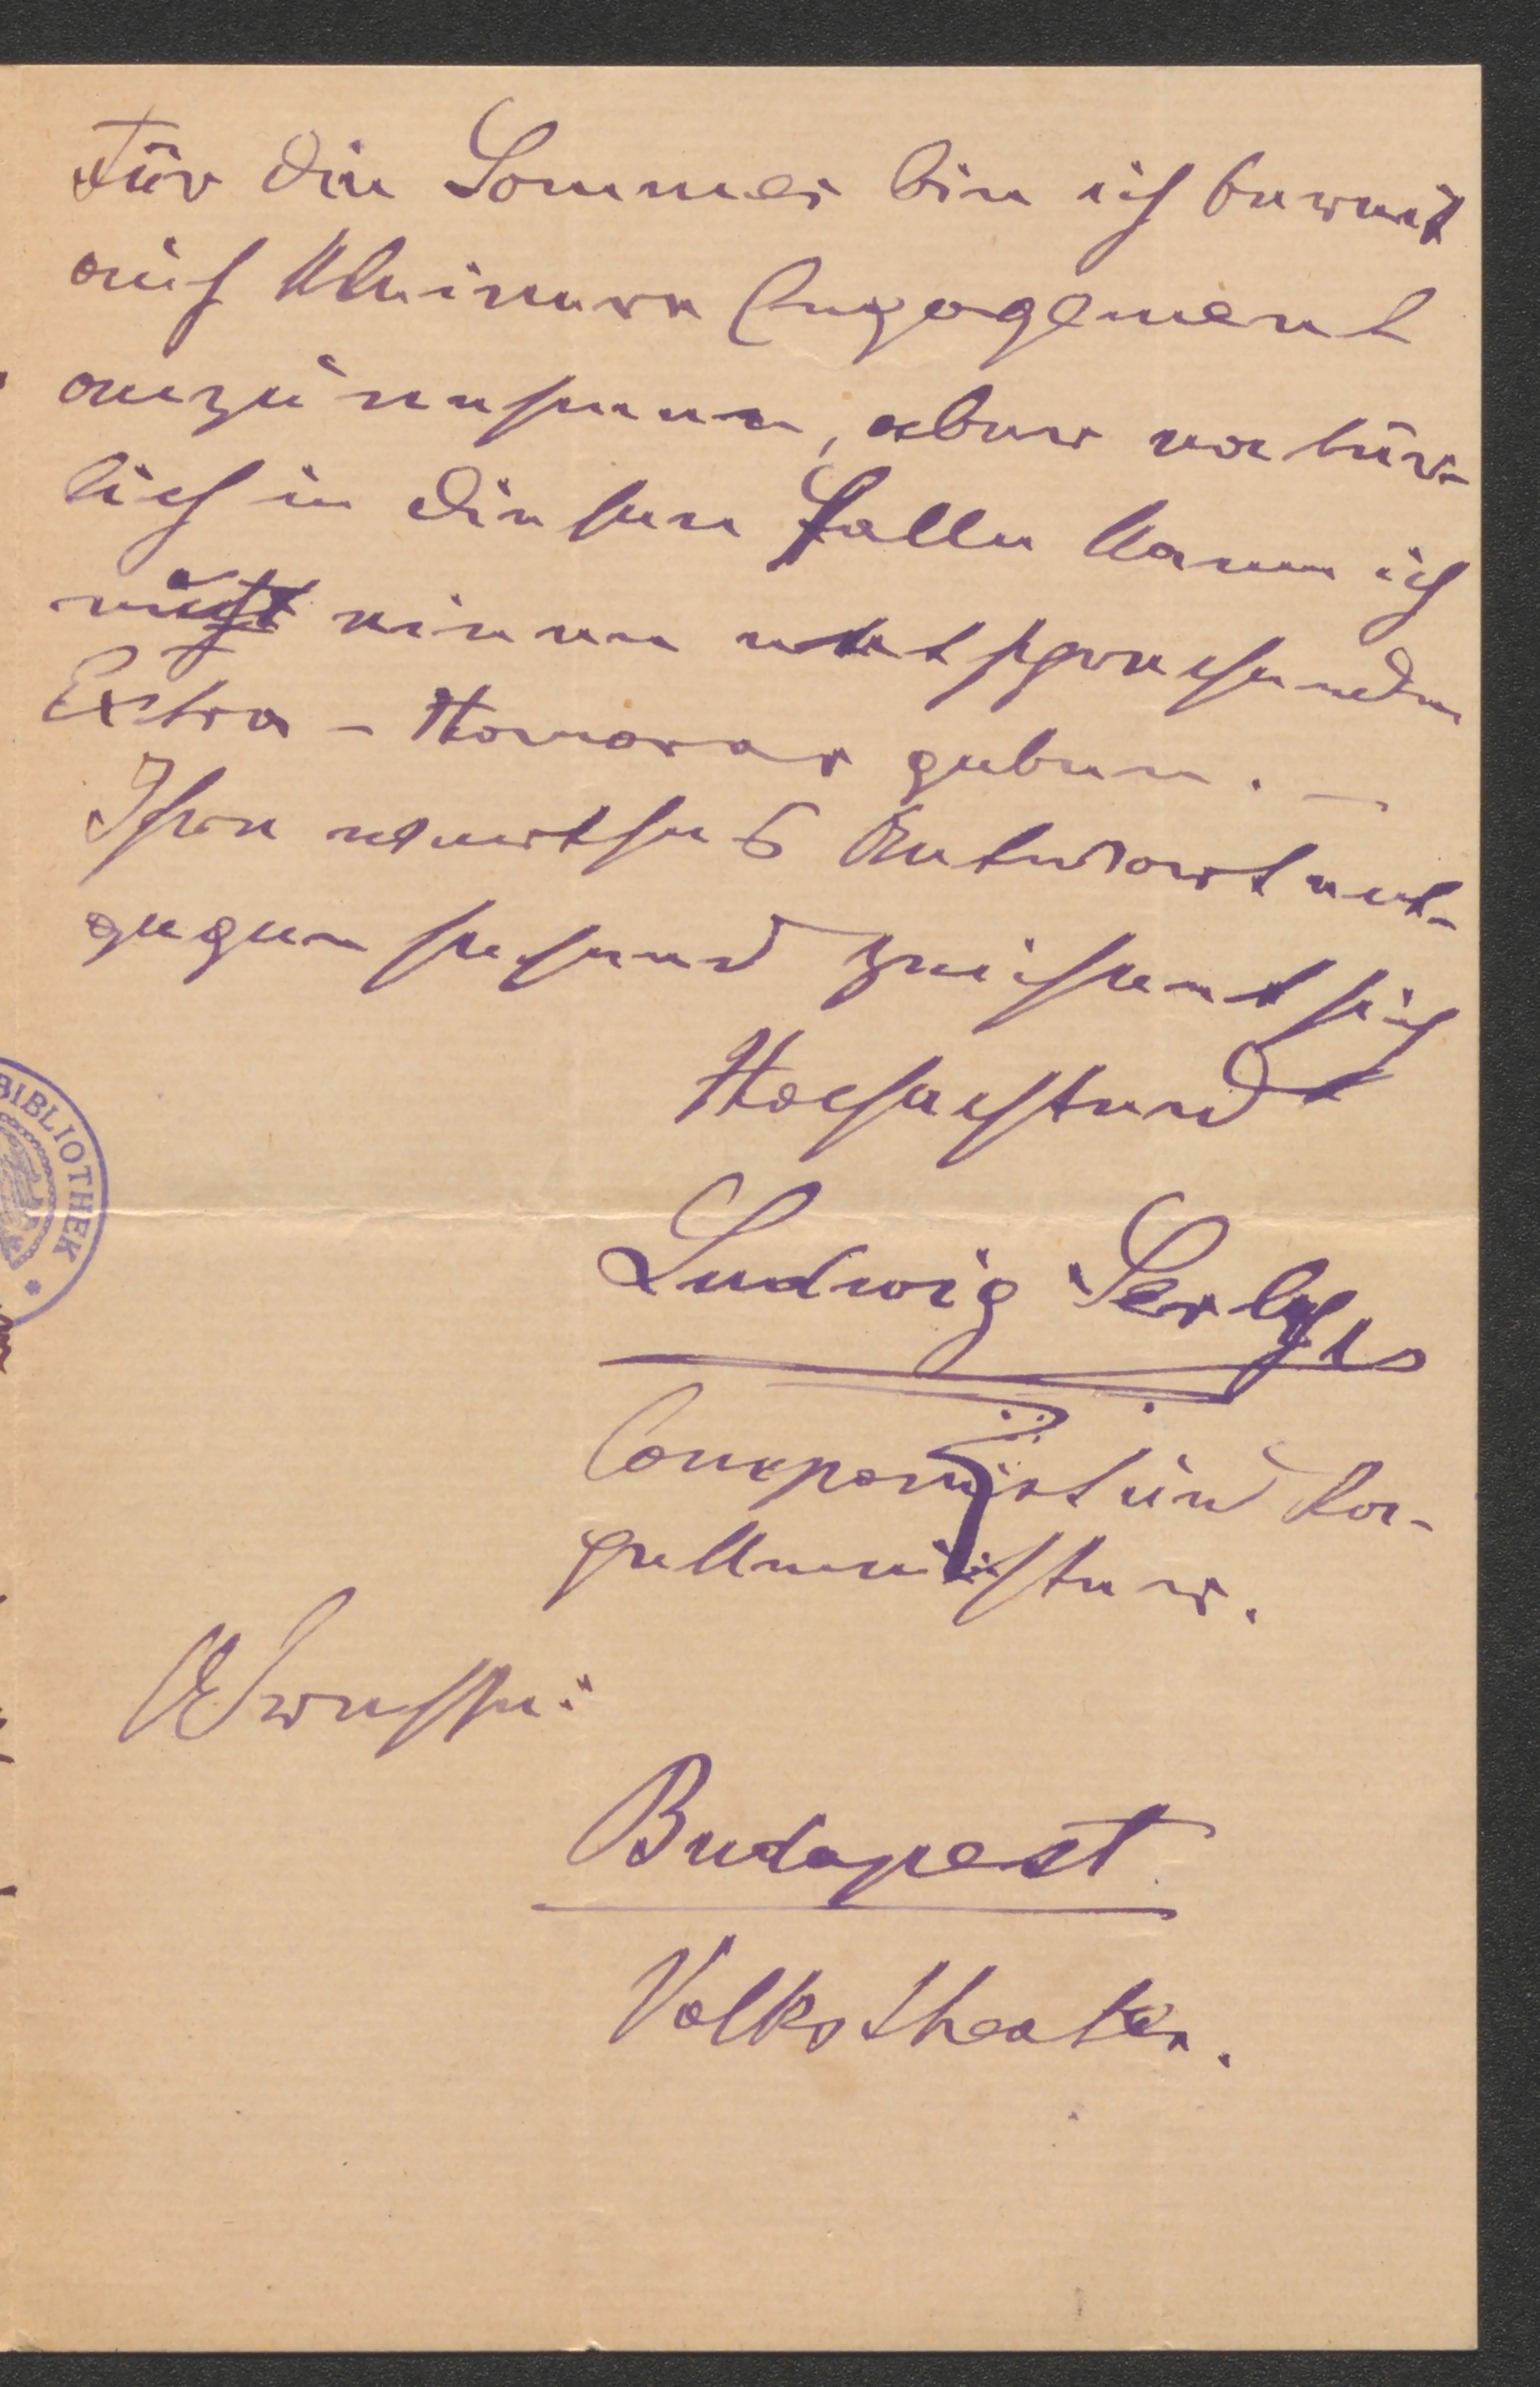 Für die Sommer bin ich bereit
auch kleinere Engagement
anzunehmen, aber natür-
lich in diesen Falle kann ich
nicht einen entsprechenden
Extra-Honorar geben. —
Ihre werthes Antwort ent-
gegensehend zeichent sich
Hochachtend
Ludwig Serly
Componist und Ka-
pellmeister.
Adresse:
Budapest
Volkstheater.
BIBLIOTHEK